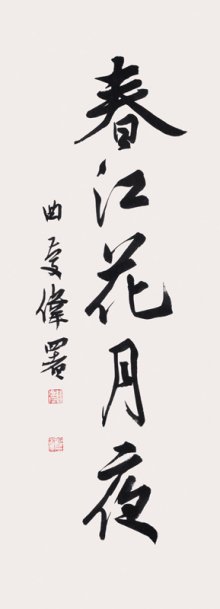 春江花月夜
曲慶偉署